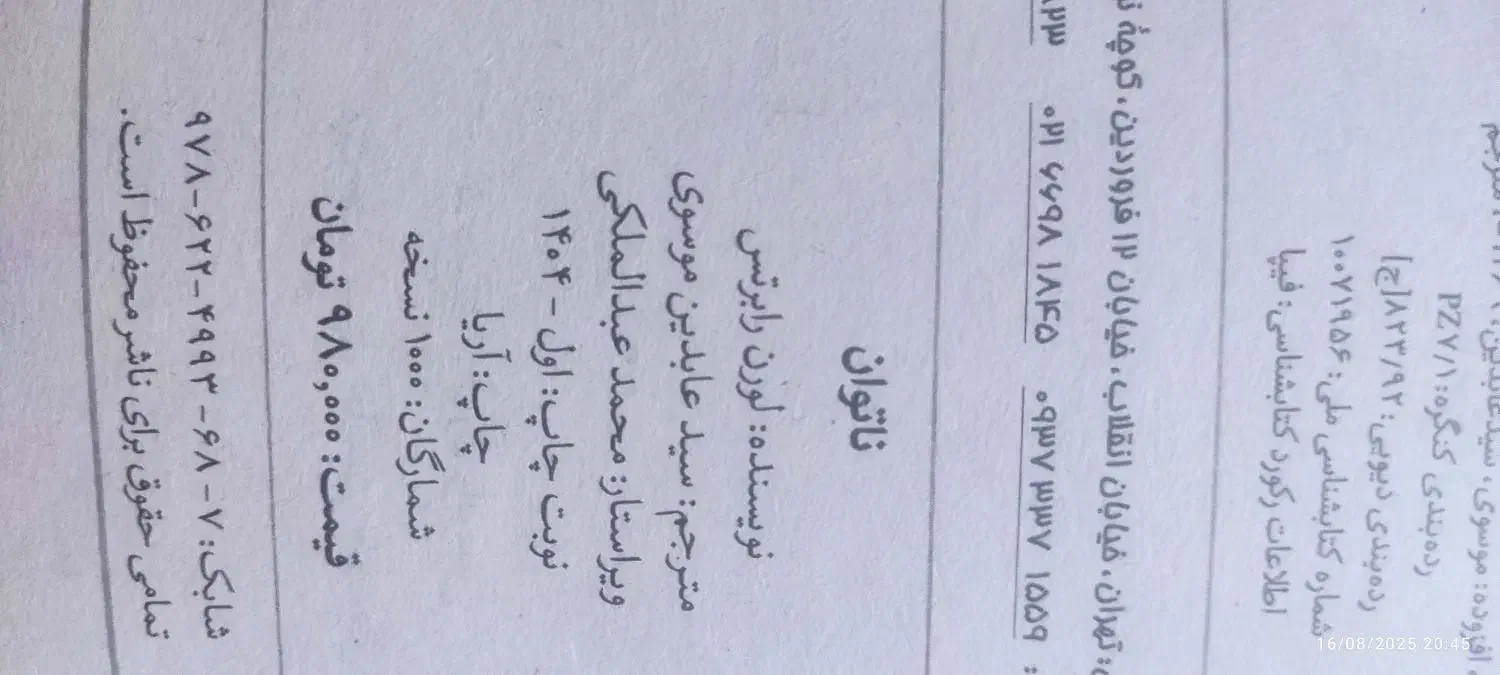 افزوده: موسوی، سیدعابدین،
رده‌بندی کنگره: PZ۷/۱
رده‌بندی دیویی: ۸۲۳/۹۲[ج]
شماره کتابشناسی ملی: ۱۰۰۷۱۹۵۶
اطلاعات رکورد کتابشناسی: فیپا
تهران، خیابان انقلاب، خیابان ۱۲ فروردین، کوچهٔ
۰۹۳۷ ۳۳۷ ۱۵۵۹ ۰۲۱ ۶۶۹۸ ۱۸۴۵
ناتوان
نویسنده: لورن رابرتس
مترجم: سید عابدین موسوی
ویراستار: محمد عبدالملکی
نوبت چاپ: اول - ۱۴۰۴
چاپ: آریا
شمارگان: ۱۰۰۰ نسخه
قیمت: ۹۸۰,۰۰۰ تومان
شابک: ۷ - ۶۸ - ۴۹۹۳ - ۶۲۲ - ۹۷۸
تمامی حقوق برای ناشر محفوظ است.
16/08/2025 20:45